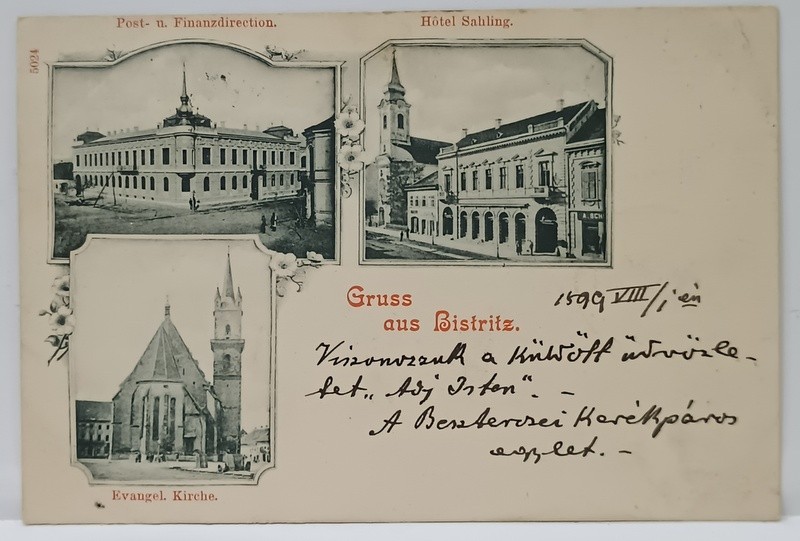 Post- u. Finanzdirection.
Hôtel Sahling.
5024
A. SCH
Gruss
aus Bistritz.
1899 VIII/1 én
Viszonozzuk a küldött üdvözle-
tet „Adj Isten”. –
A Beszterczei Kerékpáros
egylet. –
Evangel. Kirche.